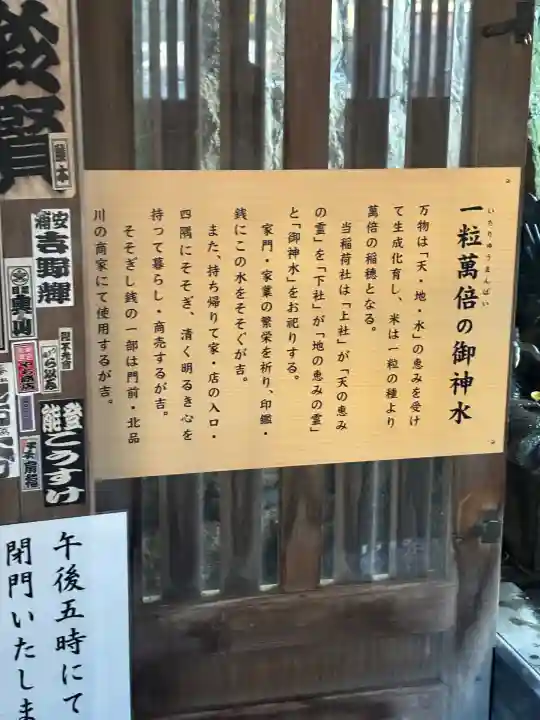 一粒萬倍の御神水
いちりゅうまんばい
万物は「天・地・水」の恵みを受け
て生成化育し、米は一粒の種より
萬倍の稲穂となる。
当稲荷社は「上社」が「天の恵み
の霊」を「下社」が「地の恵みの霊」
と「御神水」をお祀りする。
家門・家業の繁栄を祈り、印鑑・
銭にこの水をそそぐが吉。
また、持ち帰りて家・店の入口・
四隅にそそぎ、清く明るき心を
持って暮らし・商売するが吉。
そそぎし銭の一部は門前・北品
川の商家にて使用するが吉。
午後五時にて
閉門いたしま
浦安
吉野輝
能登
こうすけ